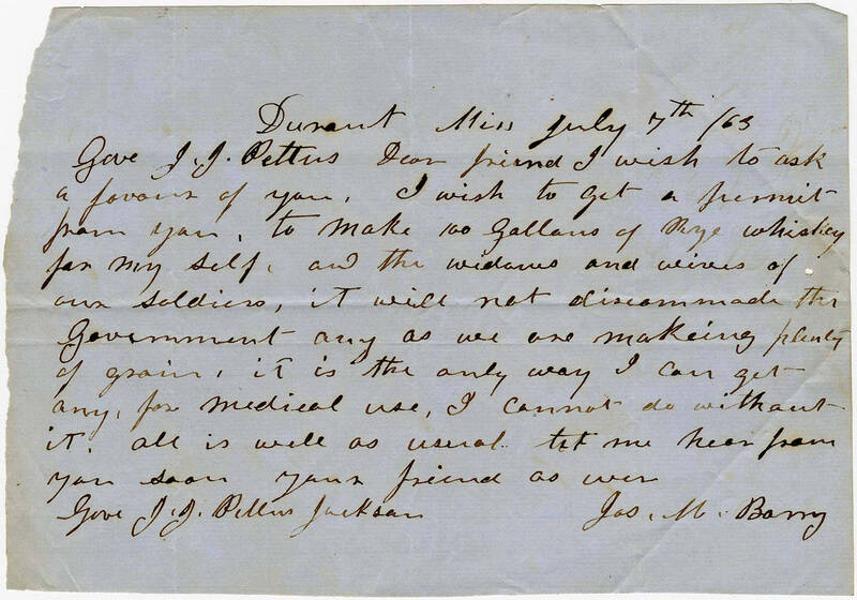 Durant Miss July 7th /63
Gove J. J. Pettus Dear friend I wish to ask
a favour of you, I wish to get a permit
from you, to make 100 Gallons of Rye whiskey
for my self, and the widows and wives of
our soldiers, it will not discommade the
Government any as we are makeing plenty
of grain, it is the only way I can get
any, for medical use, I cannot do without
it. all is well as usual. let me hear from
you soon your friend as ever
Gove J. J. Pettus Jackson Jas. M. Barry